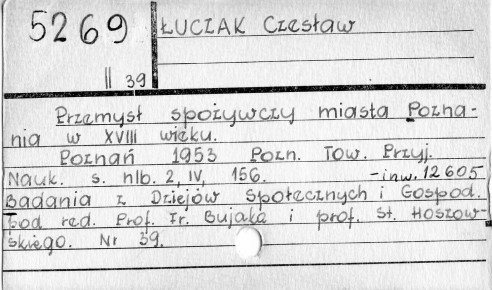 5269
ŁUCZAK Czesław
II 39
Przemysł spożywczy miasta Pozna-
nia w XVIII wieku.
Poznań 1953 Pozn. Tow. Przyj.
Nauk. s. nlb. 2, IV, 156. - inw. 12605
Badania z Dziejów Społecznych i Gospod.
pod red. Prof. Fr. Bujaka i prof. St. Hoszow-
skiego. Nr 39.